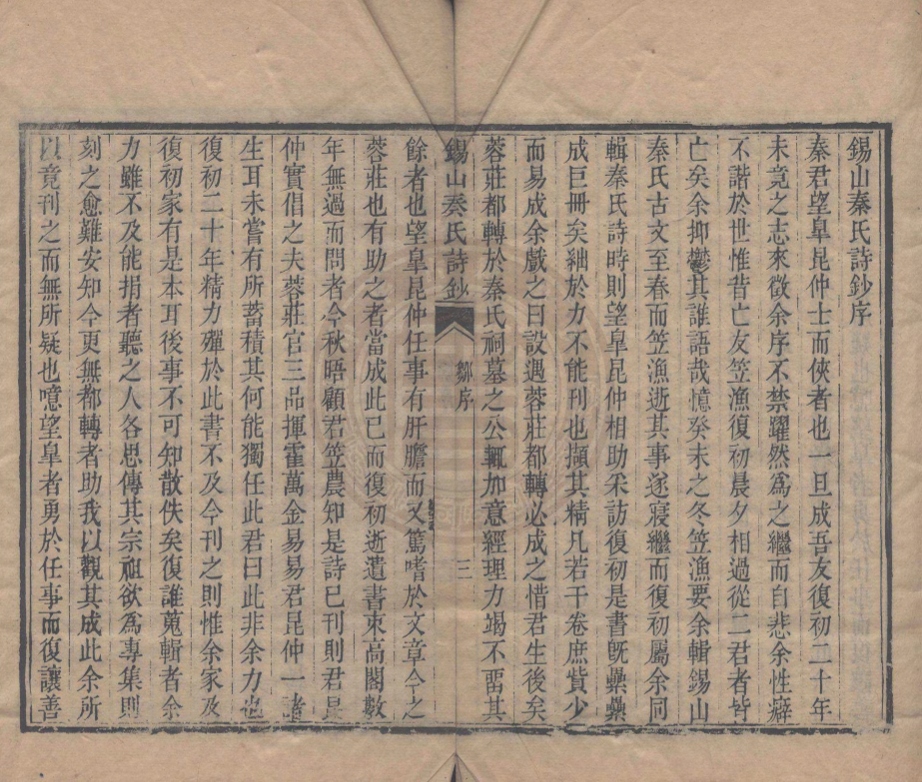 錫山秦氏詩鈔序
秦君望皐昆仲士而俠者也一旦成吾友復初二十年
未竟之志來徵余序不禁躍然為之繼而自悲余性癖
不諧於世惟昔亡友笠漁復初晨夕相過從二君者皆
亡矣余抑鬱其誰語哉憶癸未之冬笠漁要余輯錫山
秦氏古文至春而笠漁逝其事遂寢繼而復初屬余同
輯秦氏詩時則望皐昆仲相助采訪復初是書旣纍纍
成巨冊矣紬於力不能刊也擷其精凡若干卷庶貲少
而易成余戲之曰設遇蓉莊都轉必成之惜君生後矣
蓉莊都轉於秦氏祠墓之公輒加意經理力竭不畱其
錫山秦氏詩鈔 鄒序 三
餘者也望皐昆仲任事有肝膽而又篤嗜於文章今之
蓉莊也有助之者當成此已而復初逝遺書束高閣數
年無過而問者今秋晤顧君笠農知是詩已刊則君昆
仲實倡之夫蓉莊官三品揮霍萬金易易君昆仲一諸
生耳未嘗有所蓄積其何能獨任此君曰此非余力也
復初二十年精力殫於此書不及今刊之則惟余家及
復初家有是本耳後事不可知散佚矣復誰蒐輯者余
力雖不及能捐者聽之人各思傳其宗祖欲為專集則
刻之愈難安知今更無都轉者助我以觀其成此余所
以竟刊之而無所疑也噫望皐者勇於任事而復讓善